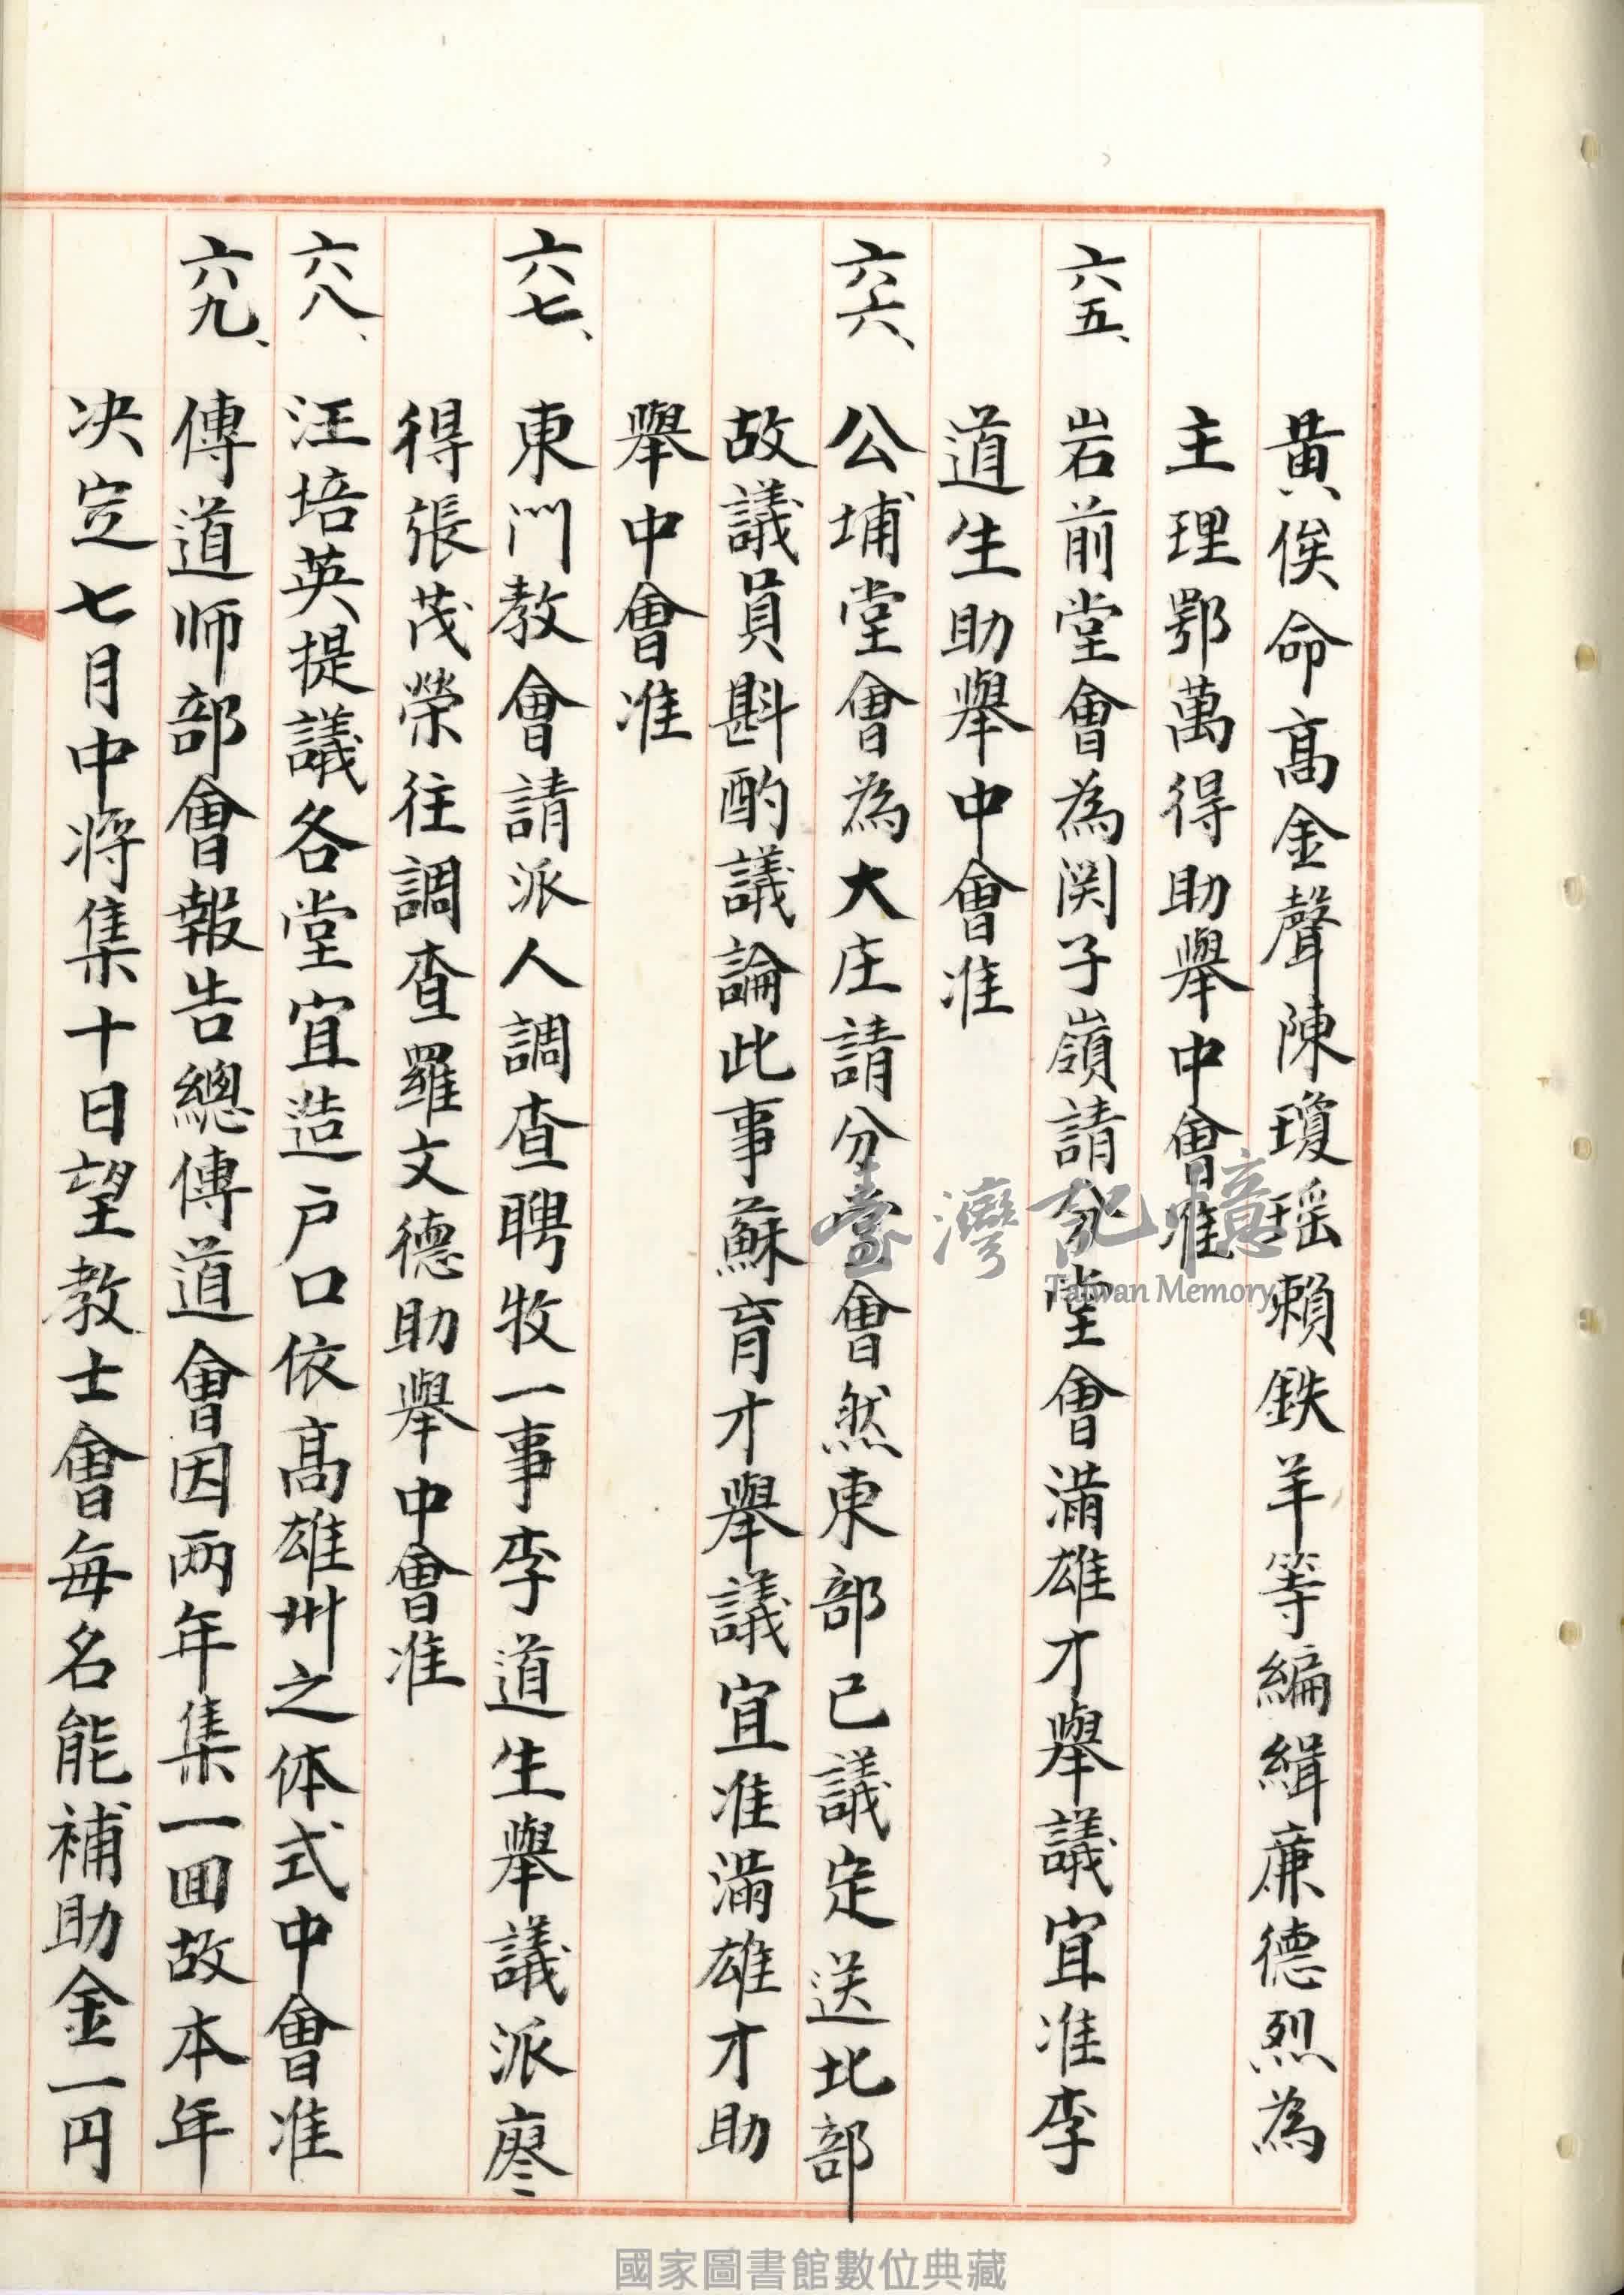 黃俟命高金聲陳瓊瑤賴鉄羊等編緝廉德烈為
主理鄂萬得助舉中會准
六五、岩前堂會為関子嶺請分堂會滿雄才舉議宜准李
道生助舉中會准
六六、公埔堂會為大庄請分堂會然東部已議定送北部
故議員斟酌議論此事蘇育才舉議宜准滿雄才助
舉中會准
六七、東門教會請派人調查聘牧一事李道生舉議派廖
得張茂榮往調查羅文德助舉中會准
六八、汪培英提議各堂宜造户口依高雄州之体式中會准
六九、傳道师部會報告總傳道會因兩年集一回故本年
决定七月中將集十日望教士會每名能補助金一円
臺灣記憶
Taiwan Memory
國家圖書館數位典藏